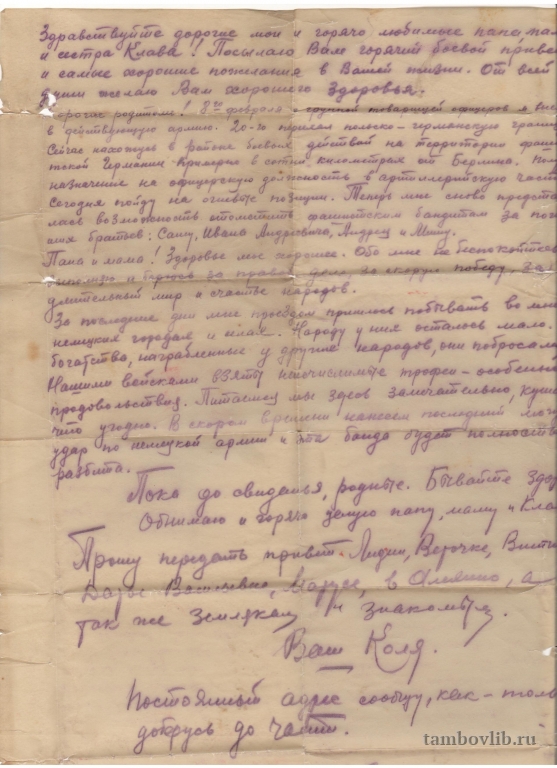 Здравствуйте дорогие мои и горячо любимые папа, мам
и сестра Клава! Посылаю Вам горячий боевой приве
и самые хорошие пожелания в Вашей жизни. От всей
души желаю Вам хорошего здоровья.
Дорогие родители! 8го февраля с группой товарищей офицеров я
в действующую армию. 20-го переехал польско-германскую грани
Сейчас нахожусь в районе боевых действий на территории фаши
тской Германии примерно в сотни километрах от Берлина.
назначение на офицерскую должность в артиллерийскую част
Сегодня пойду на огневые позиции. Теперь мне снова предста
лась возможность отомстить фашистским бандитам за
братьев: Сашу, Ивана Андреевича, Андрея и Мишу.
Папа и мама! Здоровье мое хорошее. Обо мне не беспокойтесь
и борюсь за правое дело, за скорую победу, за
длительный мир и счастье народов.
За последние дни мне проездом пришлось побывать во мн
немецких городах и селах. Народу у них осталось мало.
богатство, награбленные у других народов, они побросал
Нашими войсками взяты неисчислимые трофеи - особенн
продовольствия. Питаемся мы здесь замечательно, куш
что угодно. В скором времени нанесем последний
удар по немецкой армии и эта банда будет полность
разбита.
Пока до свиданья, родные. Бывайте здор
Обнимаю и горячо целую папу, маму и Кла
Прошу передать привет Лидии, Верочке,
Васильевне, Марусе, в а
так же землякам и знакомым.
Ваш Коля.
Постоянный адрес сообщу, как-толь
доберусь до части.
tambovlib.ru